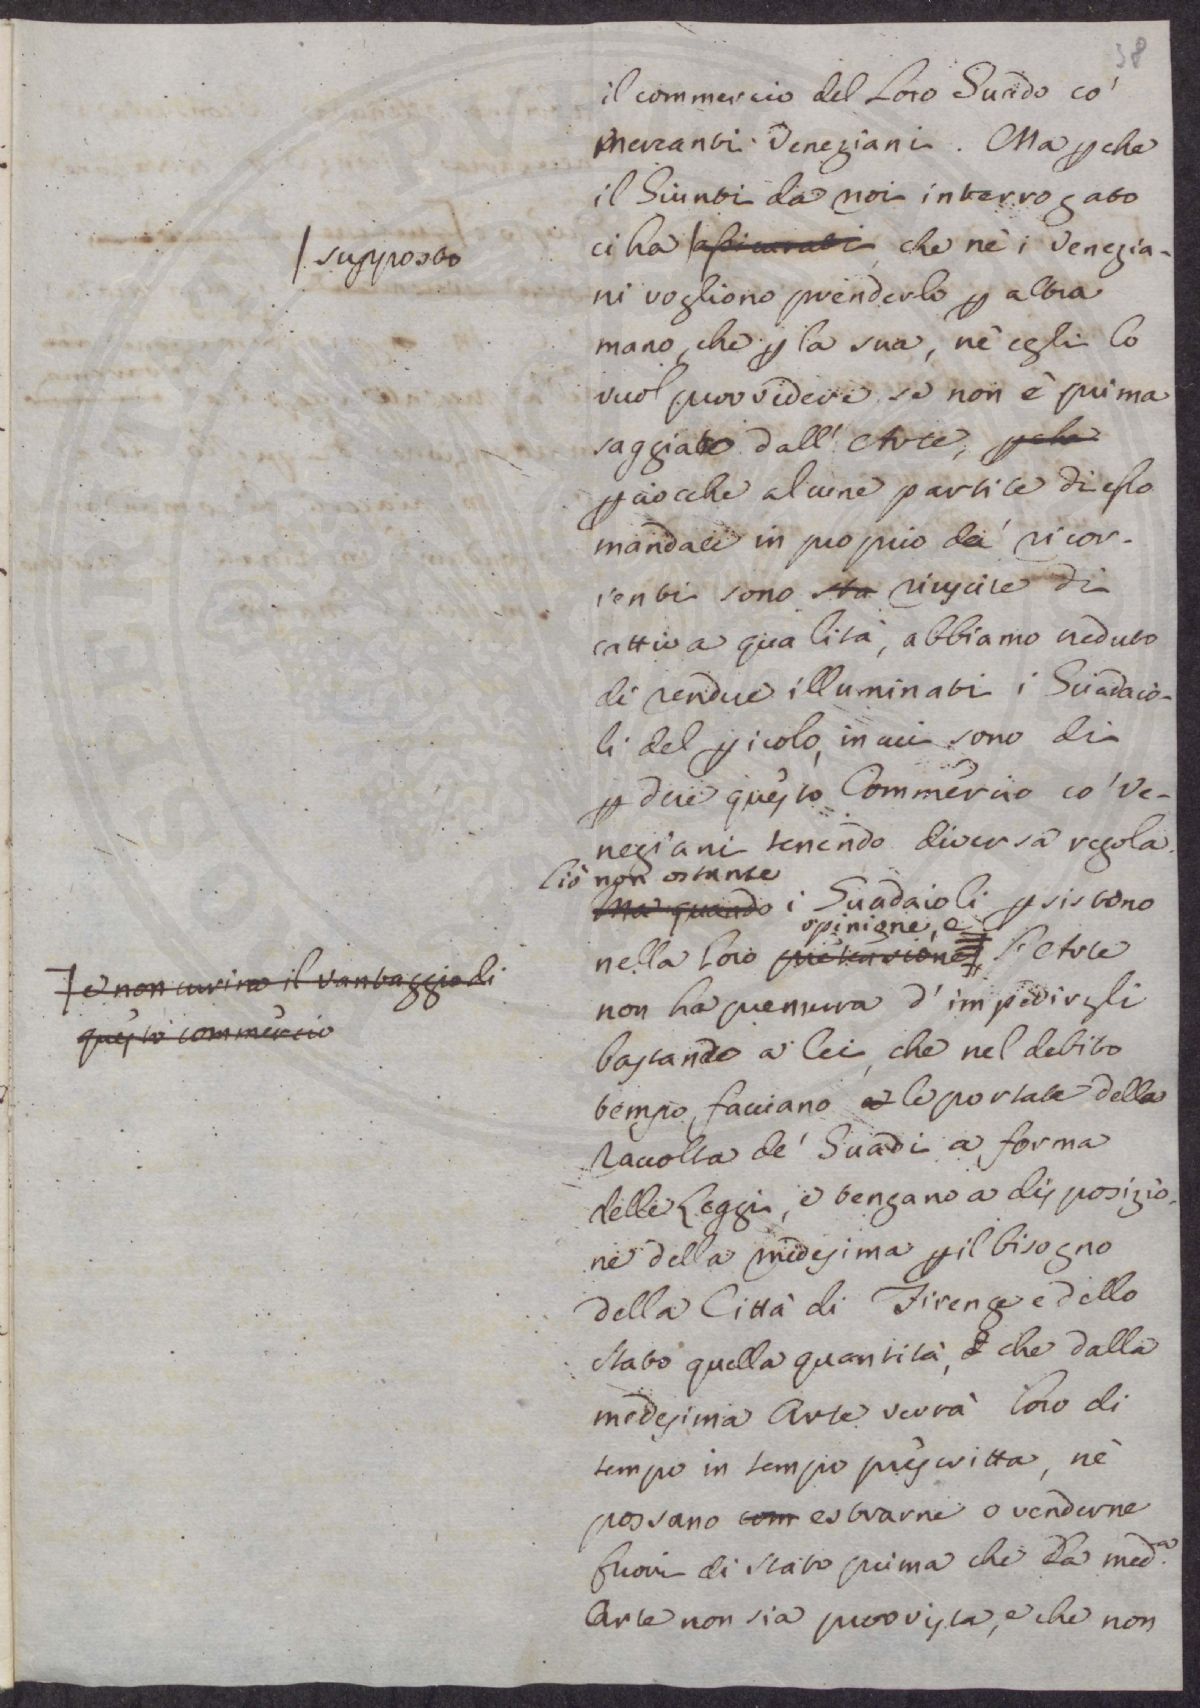 38
il commercio del Loro Guado co'
Mercanti Veneziani. Ma pche
il Giunti da noi interrogato
ci ha | assicurati, che nè i Venezia-
| supposto
ni vogliono prenderlo p altra
mano, che p la sua, nè egli lo
vuol provvedere se non è prima
saggiato dall'Arte, pche
pciocche alcune partite di esso
mandate in proprio da' ricor-
renti sono sta riuscite di
cattiva qualità, abbiamo creduto
di rendere illuminati i Guadaio-
li del picolo, in cui sono di
pdere questo Commercio co' Ve-
neziani tenendo diversa regola.
Ciò non ostante
Ma quando i Guadaioli psistono
opinione, e
nella loro pretensione l'Arte
e non curino il vantaggio di
questo commercio
non ha premura d'impedirgli
bastando a lei, che nel debito
tempo facciano a le portate della
Raccolta de' Guadi a forma
delle Leggi, e tengano a disposizio-
ne della medesima p il bisogno
della Città di Firenze e dello
stato quella quantità, che dalla
medesima Arte verrà loro di
tempo in tempo prescritta, nè
possano com estrarne o venderne
fuori di stato prima che la med.a
Arte non sia provvista, e che non